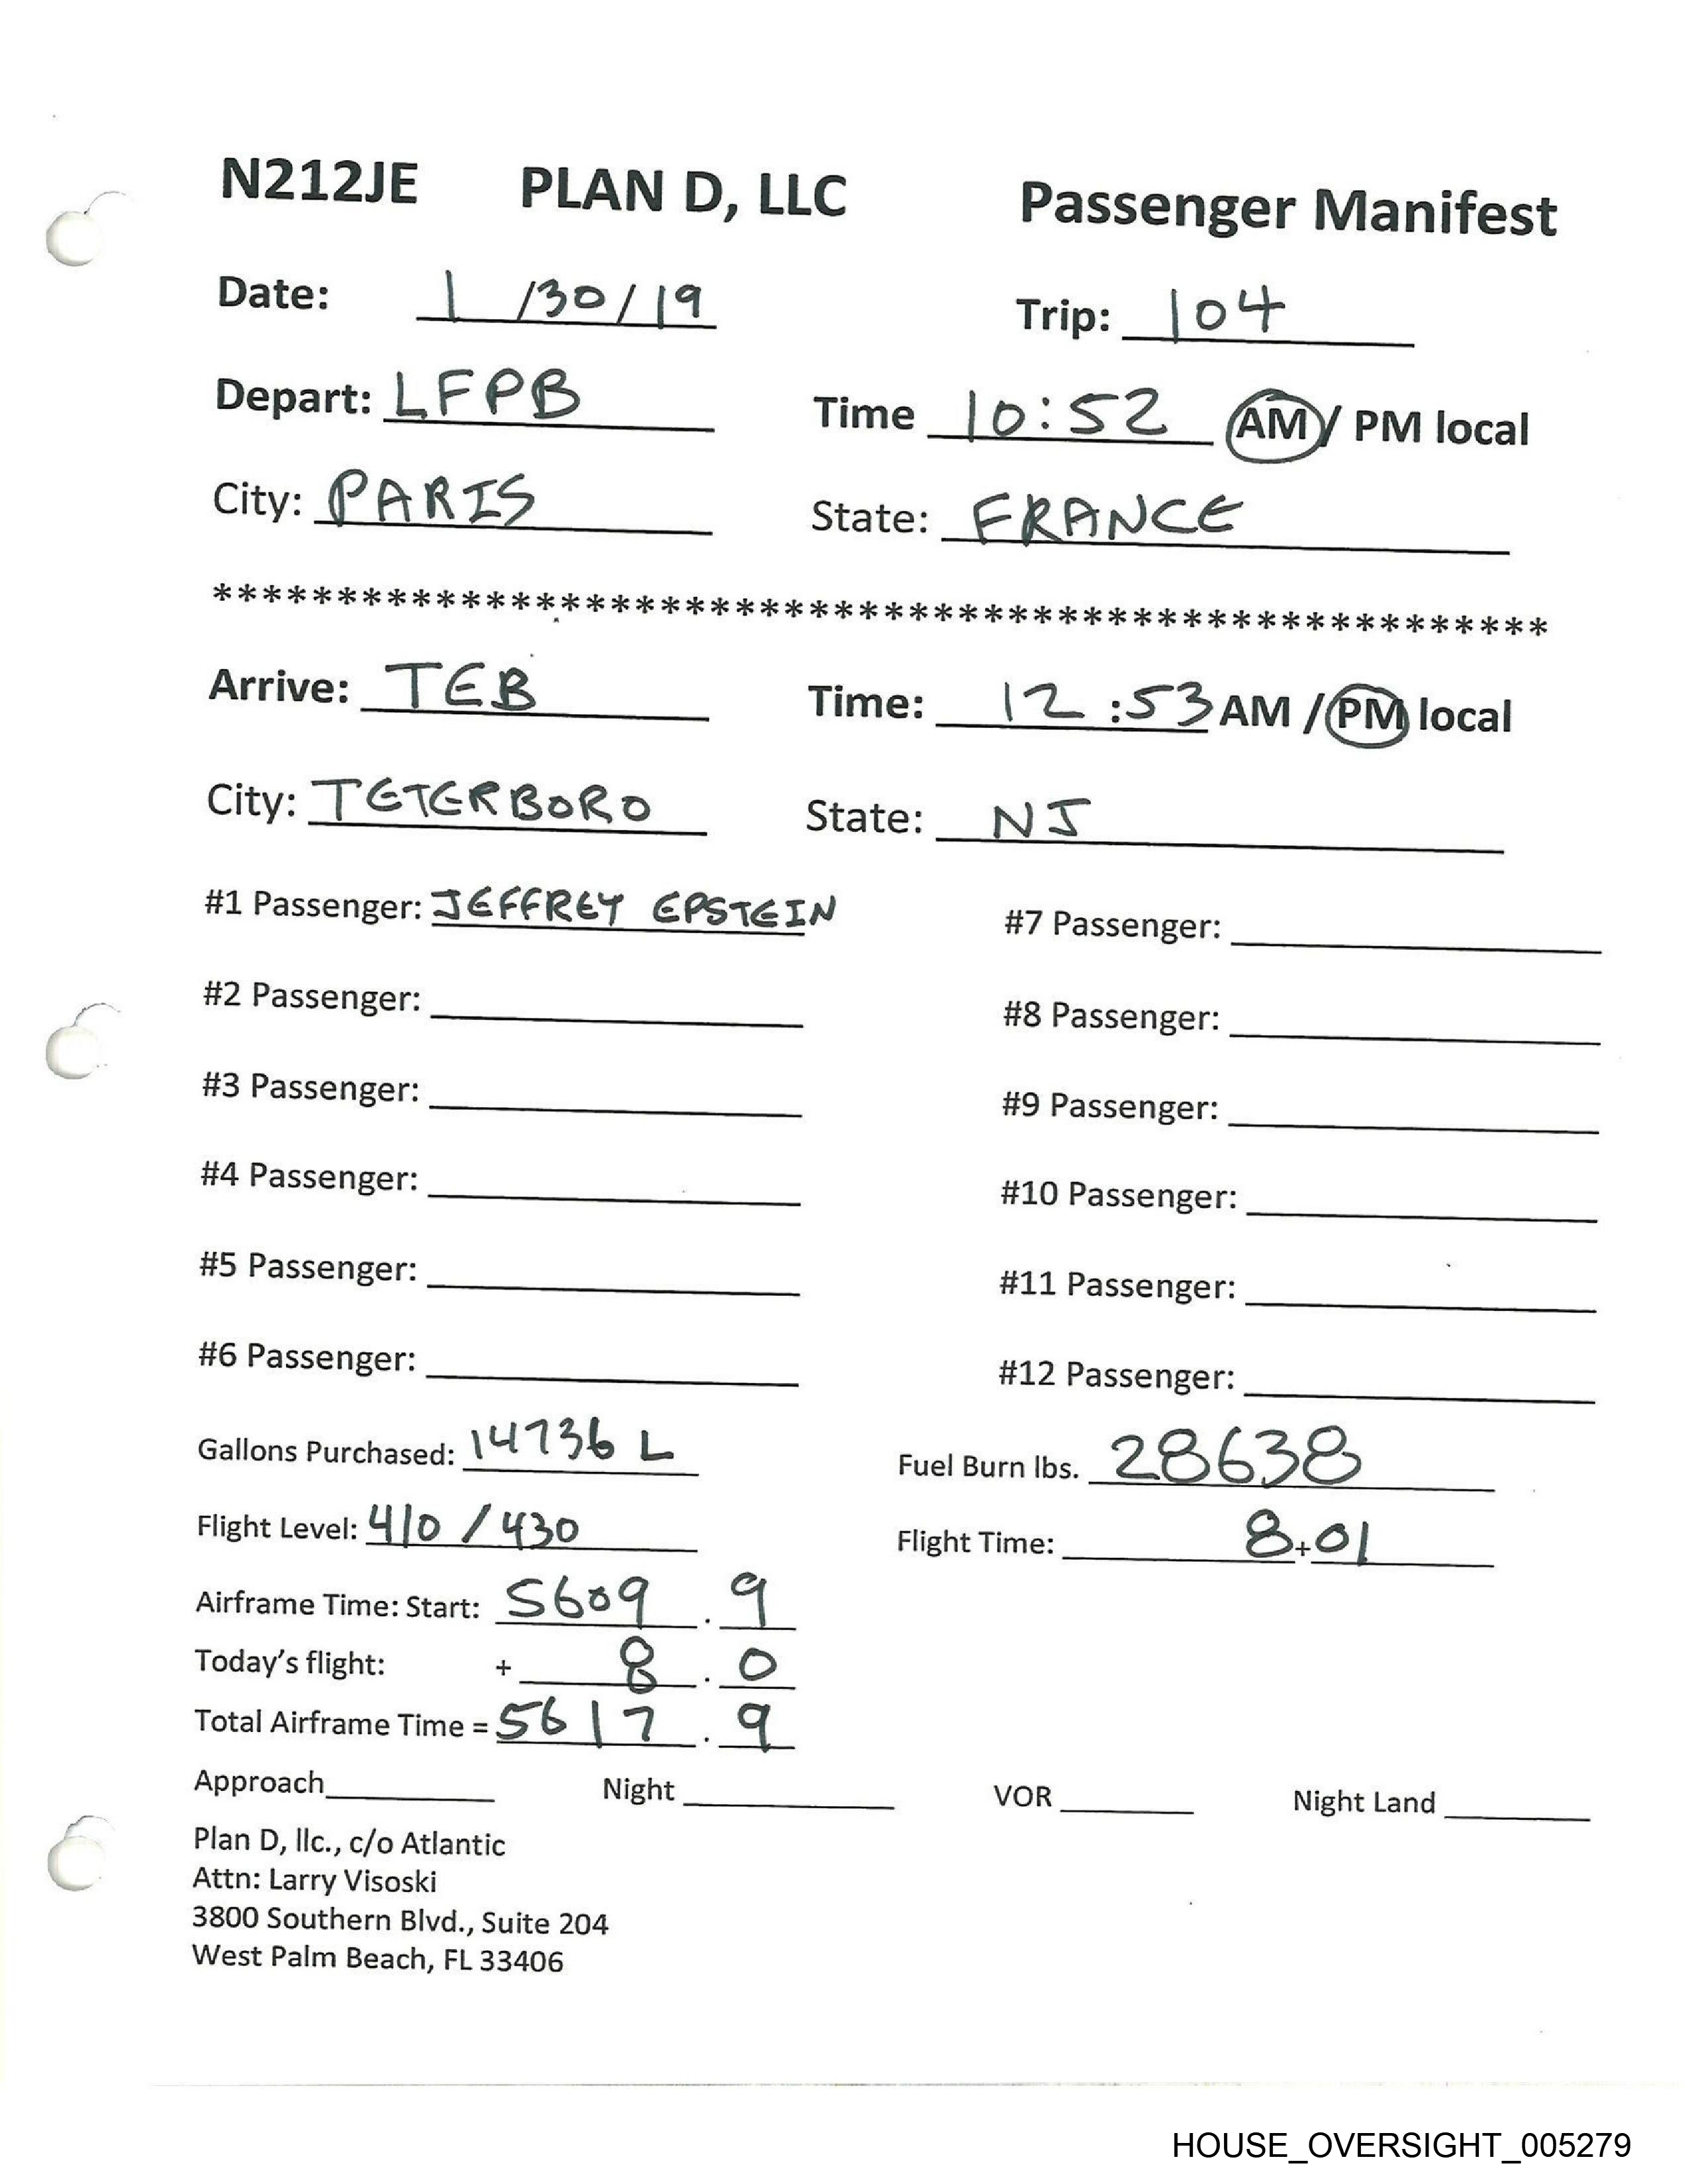 N212JE PLAN D, LLC Passenger Manifest
Date: 1/30/19 Trip: 104
Depart: LFPB Time 10:52 AM / PM local
City: PARIS State: FRANCE
******************************************************
Arrive: TEB Time: 12:53 AM / PM local
City: TETERBORO State: NJ
#1 Passenger: JEFFREY EPSTEIN #7 Passenger:
#2 Passenger: #8 Passenger:
#3 Passenger: #9 Passenger:
#4 Passenger: #10 Passenger:
#5 Passenger: #11 Passenger:
#6 Passenger: #12 Passenger:
Gallons Purchased: 14736 L Fuel Burn lbs. 28638
Flight Level: 410 / 430 Flight Time: 8+01
Airframe Time: Start: 5609 . 9
Today's flight: + 8 . 0
Total Airframe Time = 5617 . 9
Approach Night VOR Night Land
Plan D, llc., c/o Atlantic
Attn: Larry Visoski
3800 Southern Blvd., Suite 204
West Palm Beach, FL 33406
HOUSE_OVERSIGHT_005279